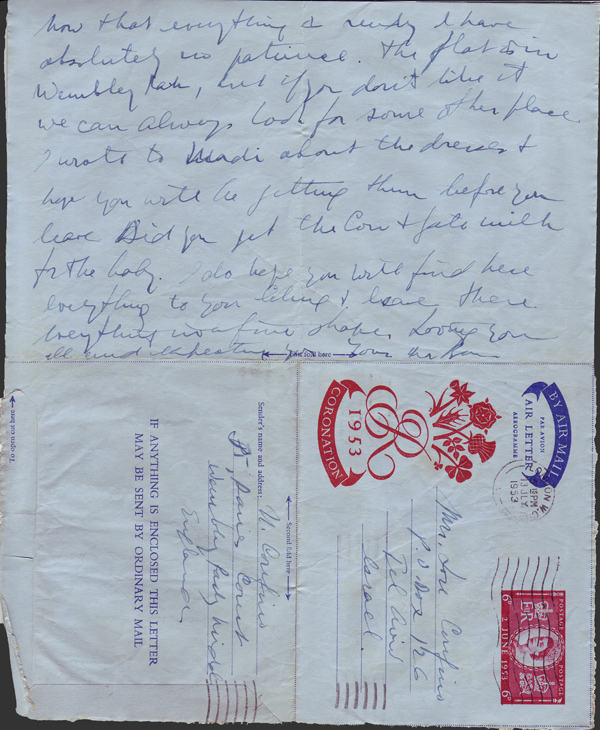 now that everything is ready I have
absolutely no patience. The flat is in
Wembley Park, but if you don't like it
we can always look for some other place
I wrote to about the dresses &
hope you will be getting them before you
leave Did you get the Cow & Gate milk
for the baby. I do hope you will find here
everything to your liking & leave there
everything in a fine shape. Loving you
all and expecting you Your
First fold here
BY AIR MAIL
PAR AVION
AIR LETTER
AEROGRAMME
CORONATION
1953
ER
LONDON W.
PM
13 JLY
1953
POSTAGE POSTAGE
6D 2 JUNE 1953 6D
Mrs.
P.O. Box 126
Tel Aviv
Israel
Second fold here
Sender's name and address:
Court
Wembley Park,
England
IF ANYTHING IS ENCLOSED THIS LETTER
MAY BE SENT BY ORDINARY MAIL
To open cut here